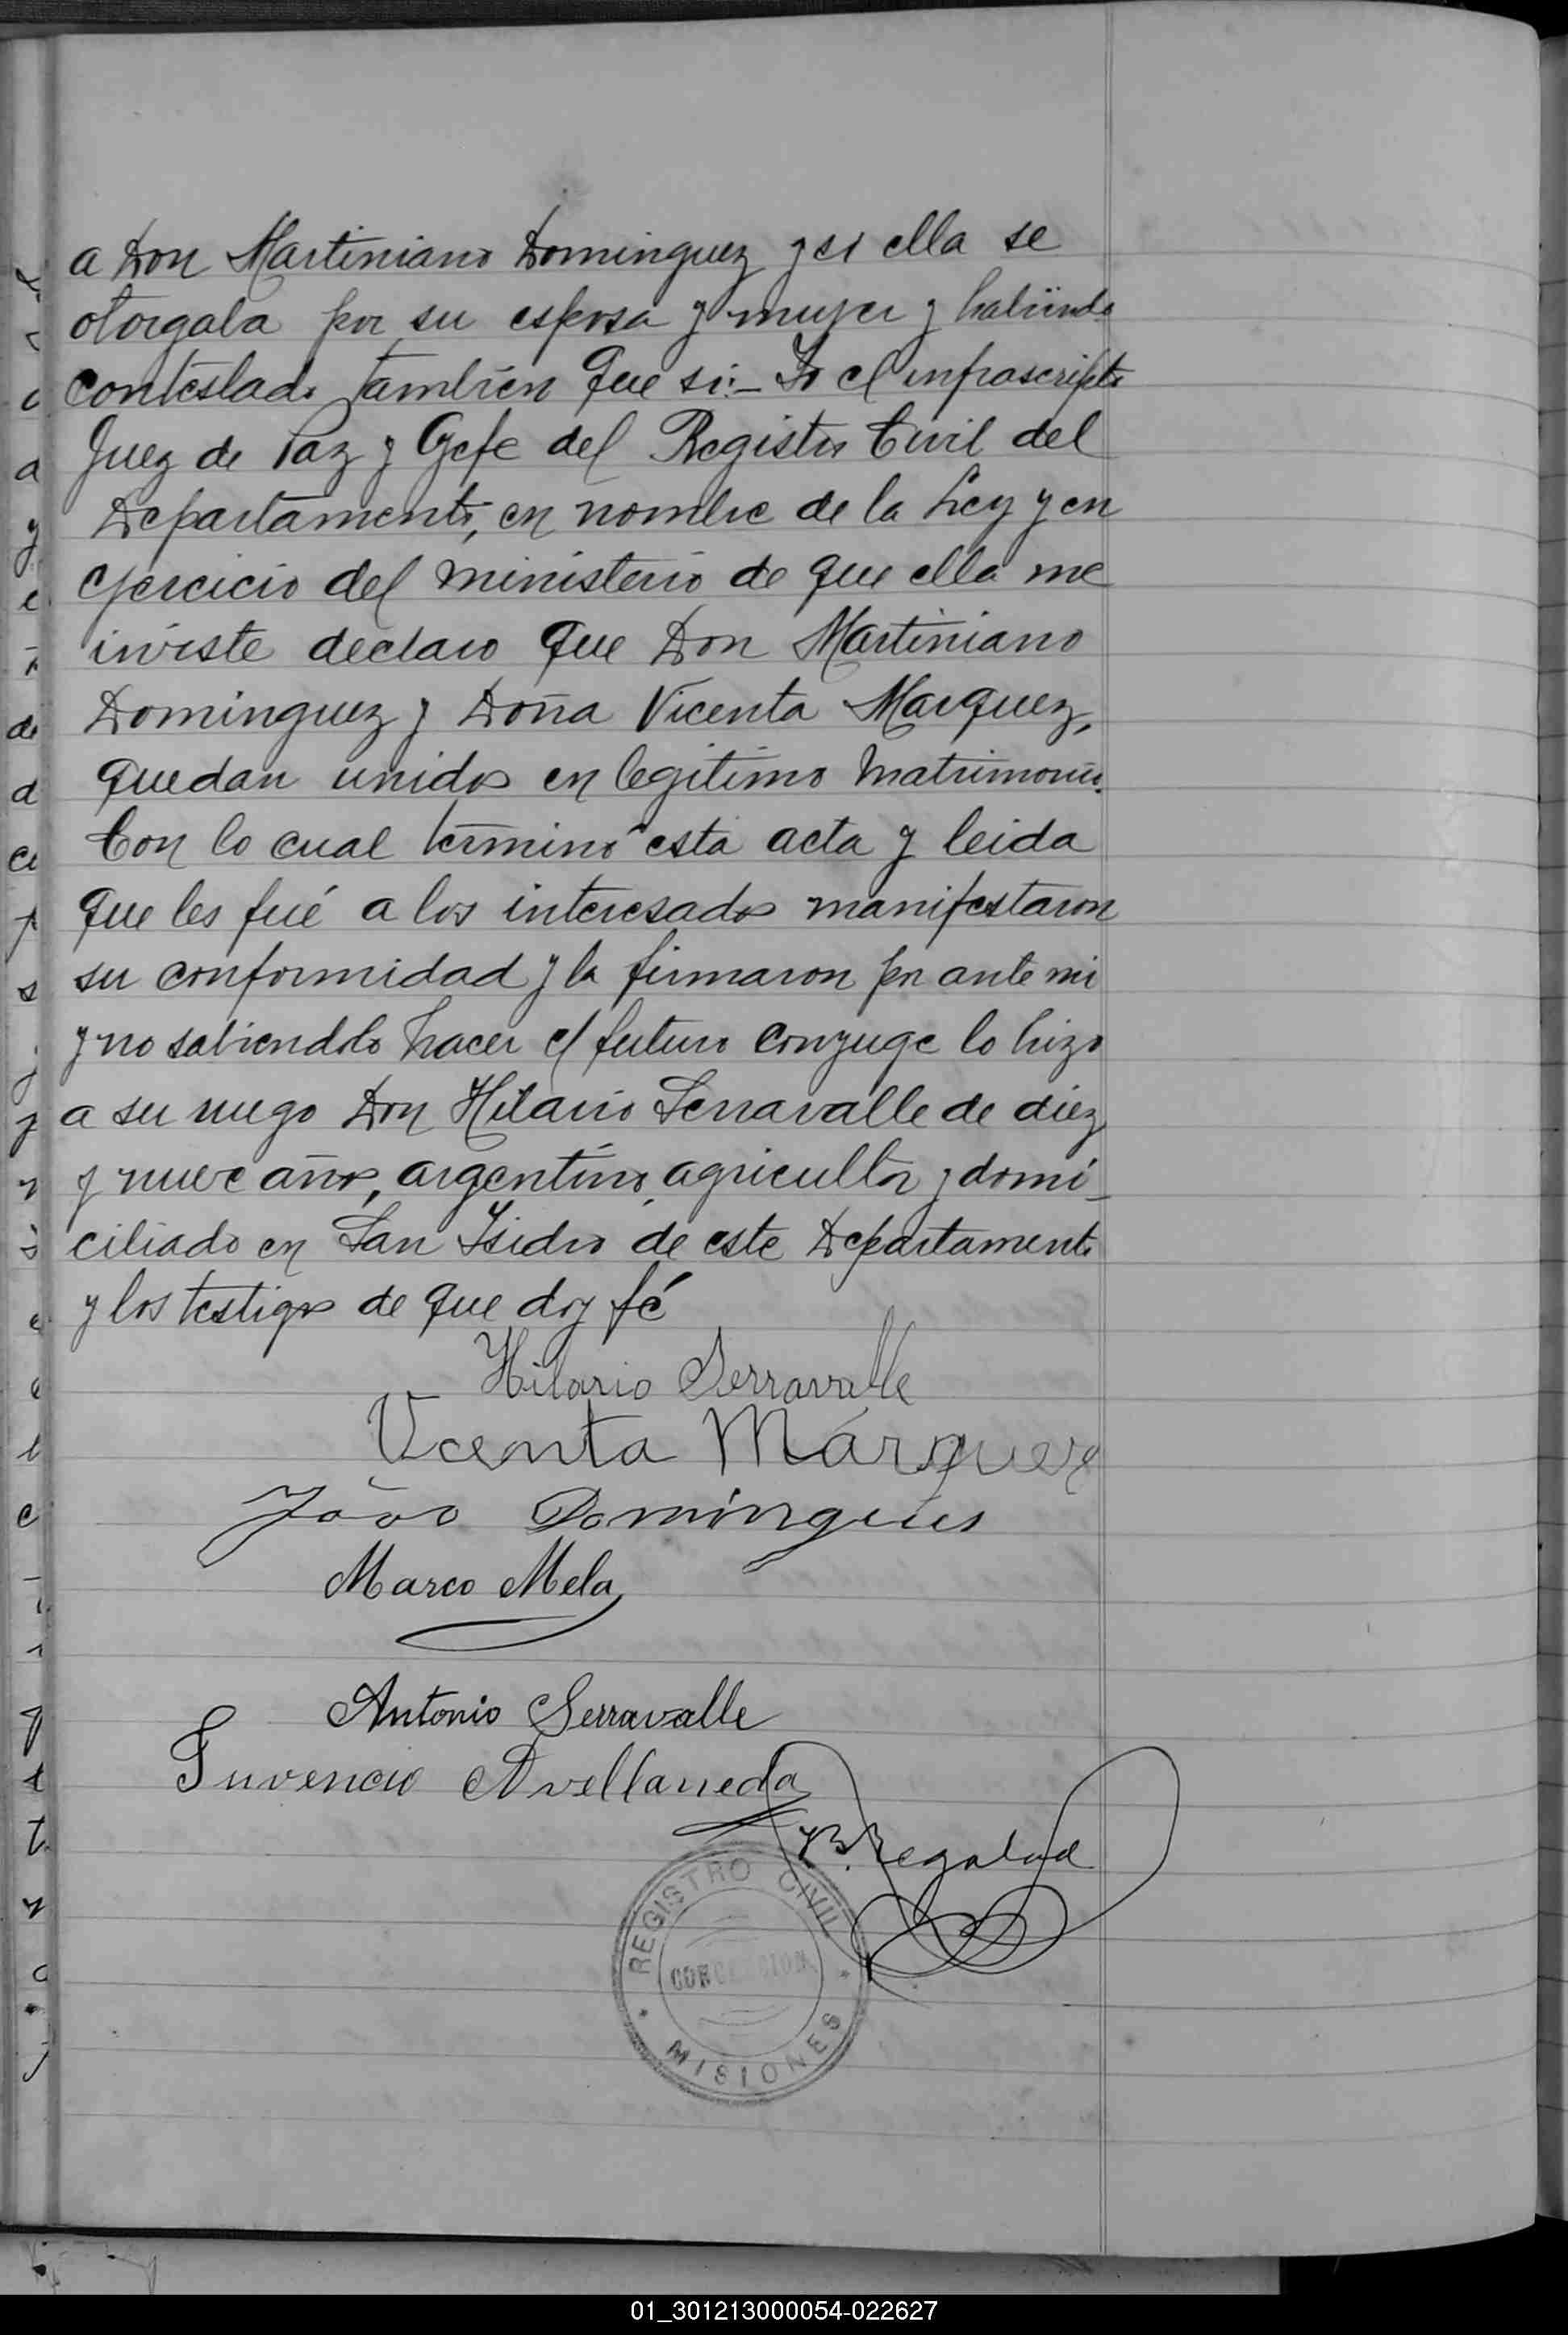 a Don Martiniano Dominguez y si ella se
otorgaba por su esposa y mujer y habiendo
contestado tambien que si:- Yo el infrascripto
Juez de Paz y Gefe del Registro Civil del
Departamento, en nombre de la Ley y en
ejercicio del ministerio de que ella me
inviste declaro que Don Martiniano
Dominguez y Doña Vicenta Marquez,
quedan unidos en legitimo matrimonio.
Con lo cual terminó esta acta y leida
que les fué a los interesados manifestaron
su conformidad y la firmaron por ante mi
y no sabiendolo hacer el futuro conyuge lo hizo
a su ruego Don Hilario Serravalle de diez
y nueve años, argentino, agricultor y domi-
ciliado en San Isidro de este Departamento
y los testigos de que doy fé
Hilario Serravalle
Vicenta Márquez
João Domingues
Marco Mela
Antonio Serravalle
Juvencio Avellaneda
B. Regalad
REGISTRO CIVIL
CONCEPCION
MISIONES
01_301213000054-022627